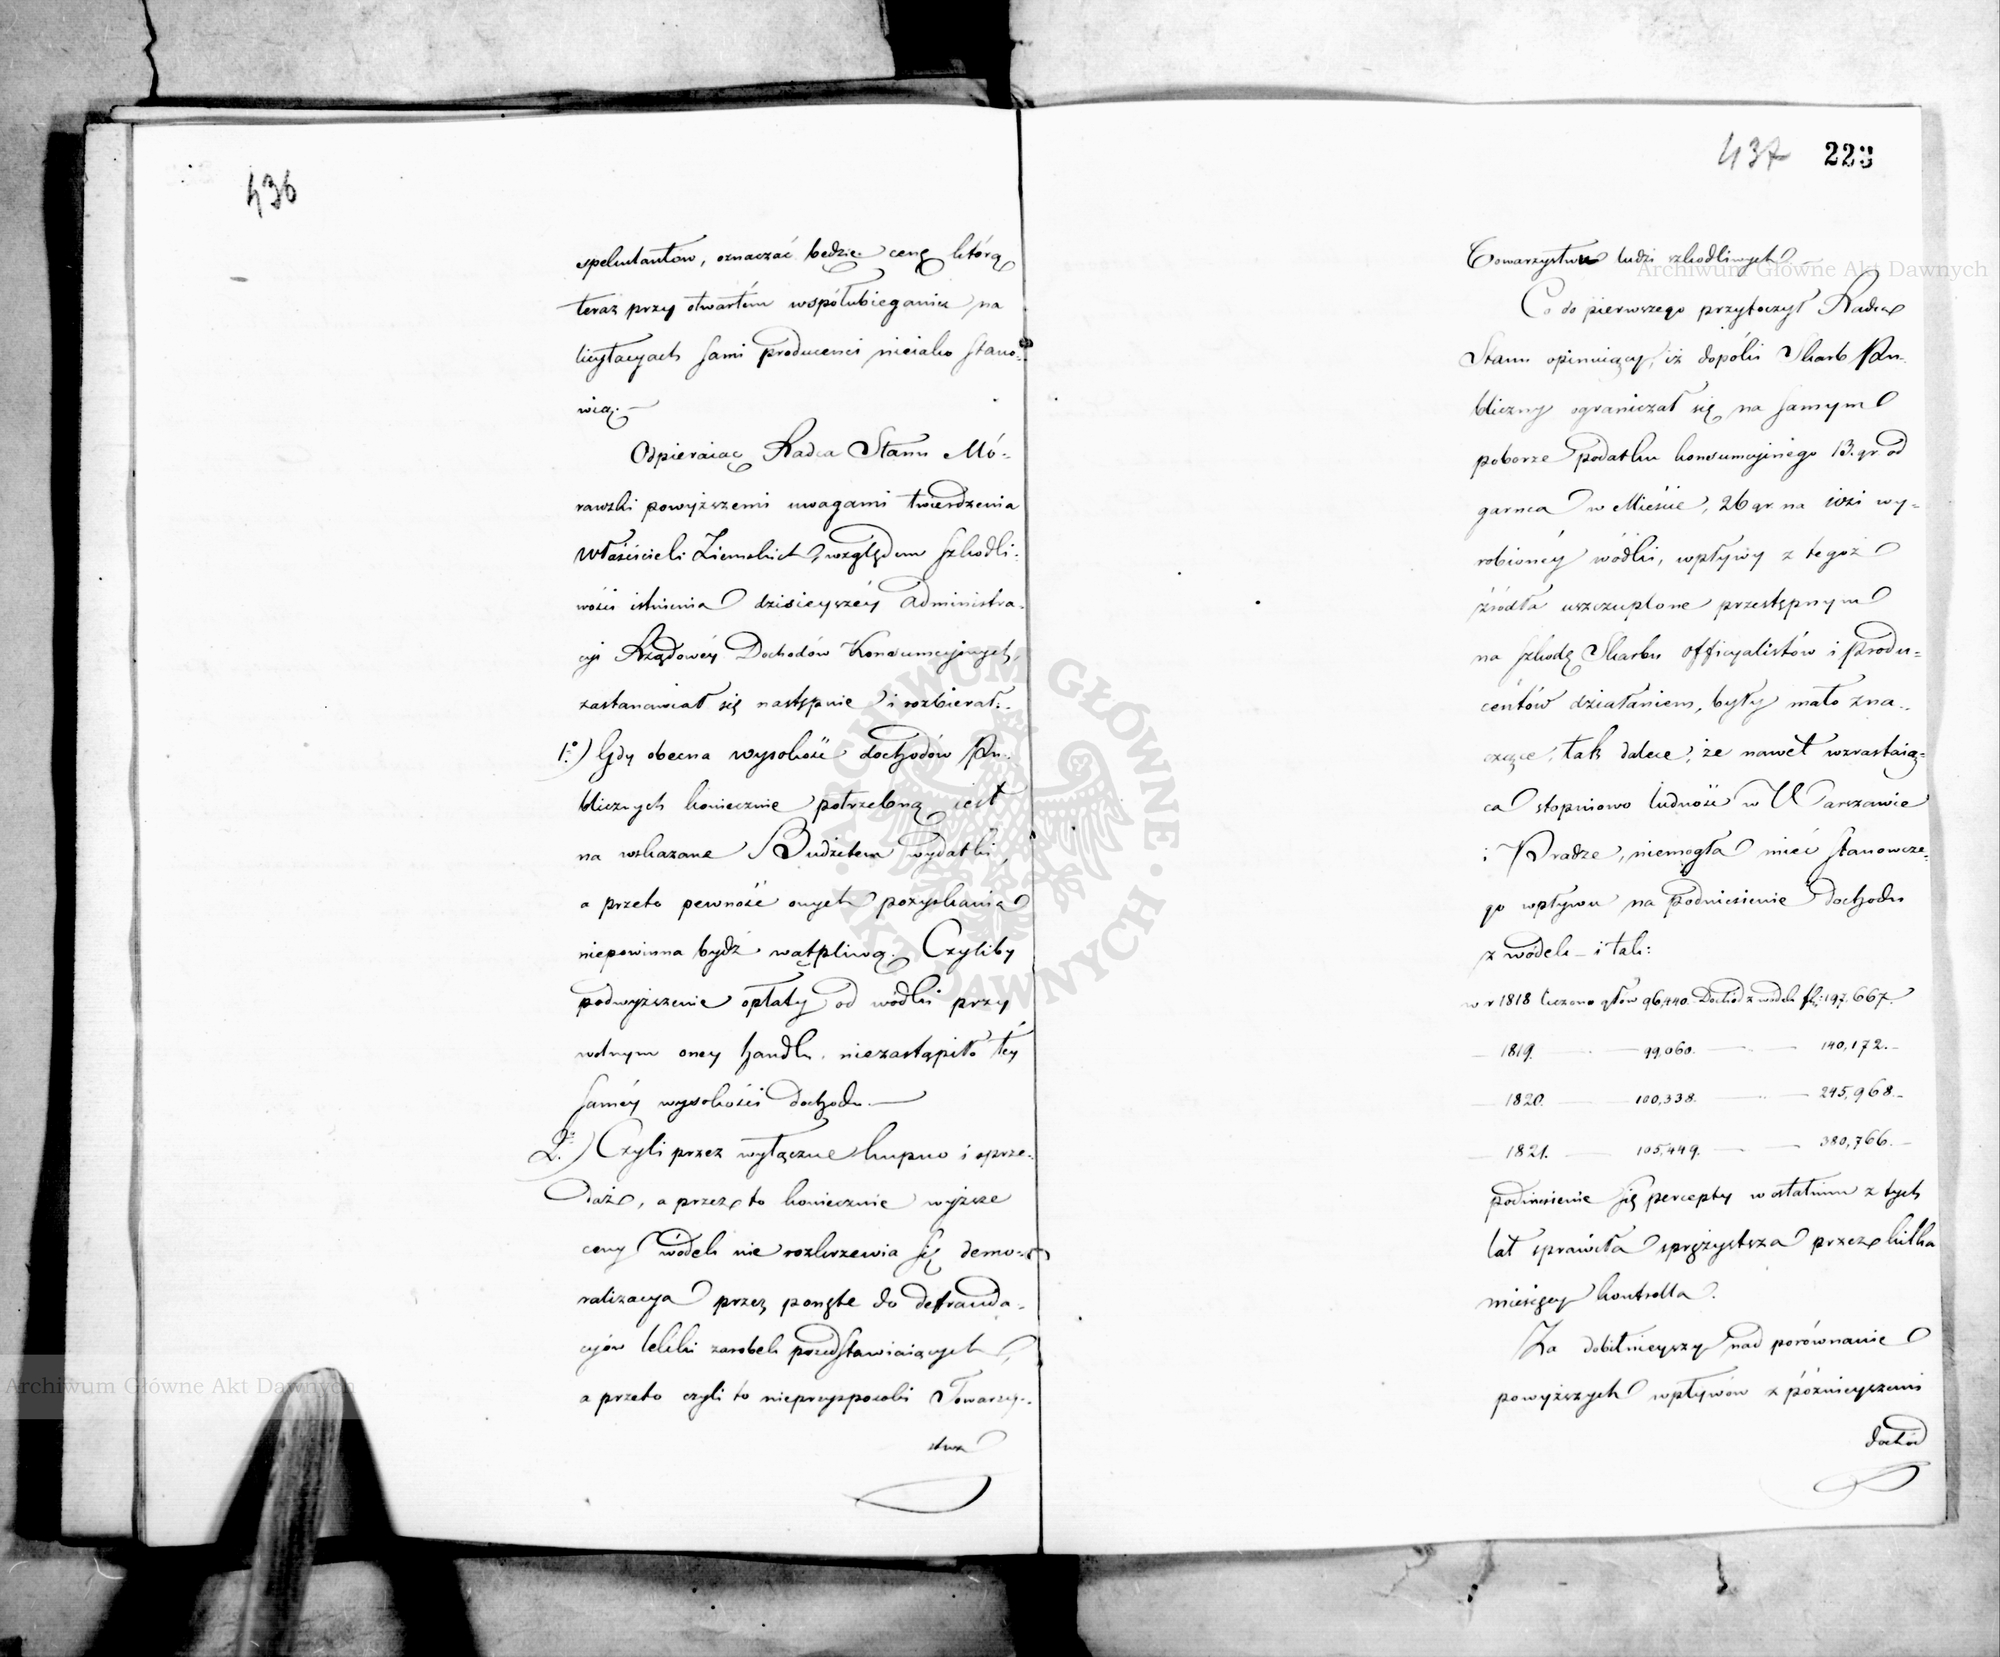 436
spekulantów, oznaczać będzie cenę którą
teraz przy otwartém współubieganiu na
licytacyach sami producenci nieiako stano-
wią.—
Odpieraiąc Radca Stanu Mo-
rawski powyższemi uwagami twierdzenia
Właścicieli Ziemskich, względem szkodli-
wości istnienia dzisieyszéy administra-
cyi Rządowéy Dochodów Konsumcyinych,
zastanawiał się następnie i rozbierał:
1.º) Gdy obecna wysokość dochodów Pu-
blicznych koniecznie potrzebną iest
na wskazane Budżetem wydatki,
a przeto pewność onych pozyskania
niepowinna bydź wątpliwą. Czyliby
podwyższenie opłaty od wódki przy
wolnym oney handlu, niezastąpiło téy
saméy wysokości dochodu.—
2.º) Czyli przez wyłączne kupno i sprze-
daż, a przez to koniecznie wyższe
ceny wódek nie rozkrzewia się demo-
ralizacya przez ponętę do defrauda-
cyów lekki zarobek przedstawiaiących,
a przeto czyli to nieprzysposobi Towarzy-
stwa
437 223
Towarzystwu ludzi szkodliwych.—
Co do pierwszego przytoczył Radca
Stanu opiniuiący, iż dopóki Skarb Pu-
bliczny ograniczał się na samym
poborze podatku konsumcyinego 13. gr od
garnca w Mieście, 26 gr. na wsi wy-
robionéy wódki, wpływy z tegoż
źródła uszczuplone przestępnym
na szkodę Skarbu officyalistów i Produ-
centów działaniem, były mało zna-
czące, tak dalece, że nawet wzrastaią-
ca stopniowo ludność w Warszawie
i Pradze, niemogła mieć stanowcze-
go wpływu na podniesienie dochodu
z wódek — i tak:
w r 1818 liczono głów 96,440. Dochód z wódek fl: 197,667.
— 1819. — 99,060. — 140,172.—
— 1820. — 100,338. — 245,968.—
— 1821. — 105,449. — 380,766.—
podniesienie się percepty w ostatnim z tych
lat sprawiła sprężystsza przez kilka
miesięcy kontrolla.
Za dobitnieyszy nad porównanie
powyższych wpływów z późnieyszemi
dochód
Archiwum Główne Akt Dawnych
ARCHIWUM GŁÓWNE AKT DAWNYCH
Archiwum Główne Akt Dawnych